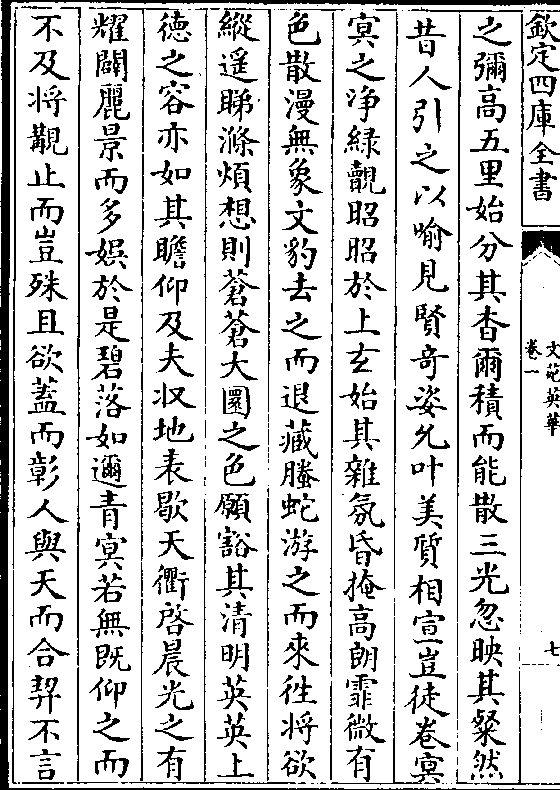 欽定四庫全書
文苑英華
卷一
七
之彌高五里始分其杳爾積而能散三光忽映其粲然
昔人引之以喻見賢奇姿允叶美質相宣豈徒卷㝠
㝠之净綠覿昭昭於上𤣥始其雜氛昏掩高朗霏微有
色散漫無象文豹去之而退藏螣蛇游之而來徃将欲
縱遥睇滌煩想則蒼蒼大圜之色願豁其清明英英上
德之容亦如其瞻仰及夫収地表歇天衢啓晨光之有
耀闢麗景而多娱於是碧落如邇青㝠若無既仰之而
不及将覯止而豈殊且欲蓋而彰人與天而合契不言